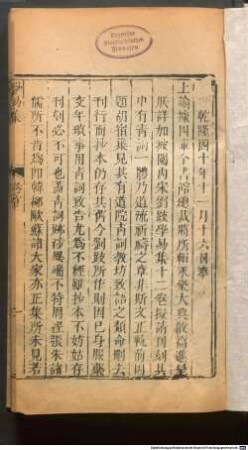 乾隆四十年十一月十六日奉
上諭據四庫全書館總裁將所輯永樂大典散篇進呈
朕詳加披閱內宋劉跂學易集十二卷擬請刊刻其
中有青詞一體乃道流祈禱之章非斯文正軌前因
題胡宿集見其有道院青詞教坊致語之類命刪去
刊行而抄本仍存其舊今劉跂所作則因己身服藥
交年瑣事用青詞致告尤為不經雖抄本不妨姑存
刊刻必不可也蓋青詞跡涉異端不特周程張朱諸
儒所不肯為即韓柳歐蘇諸大家亦正集所未見若
Bayerische
Staatsbibliothek
München